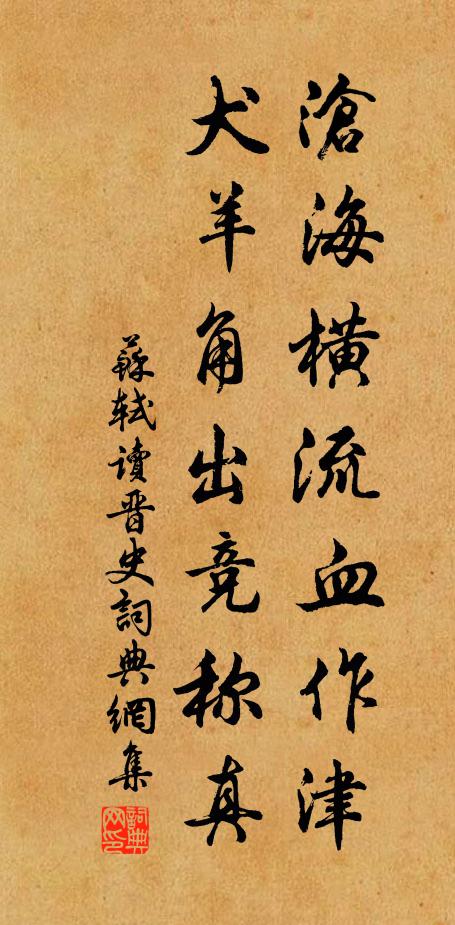 滄海橫流血作津
犬羊角出竞称真
蘇轼读晋史詞典網集
詞典网印